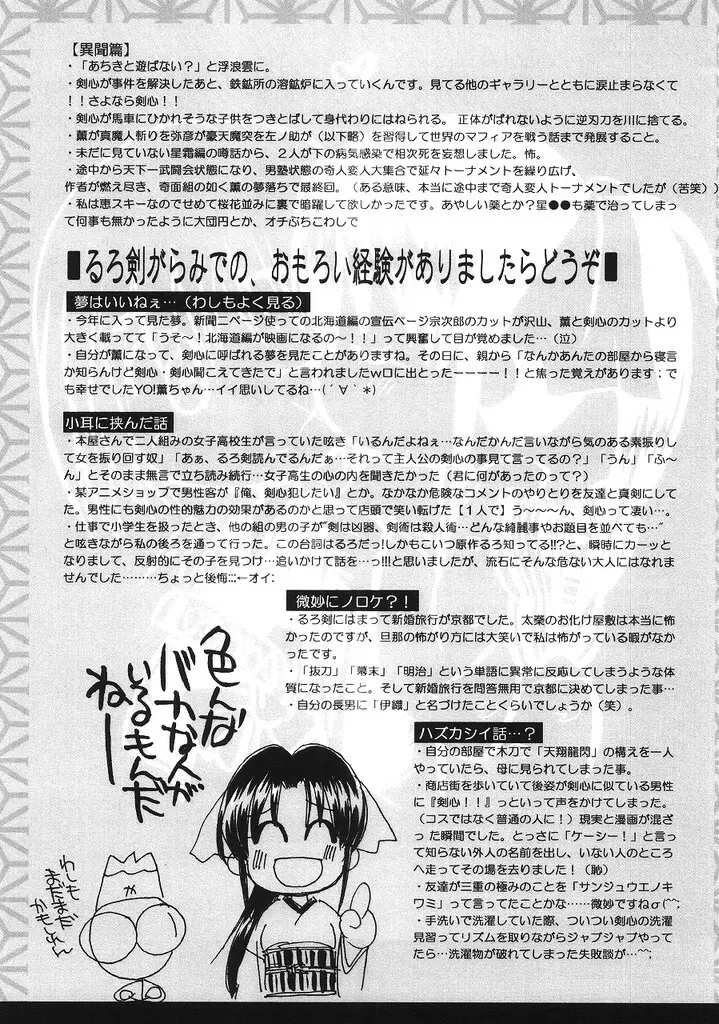 【異聞篇】
・「あちきと遊ばない？」と浮浪雲に。
・剣心が事件を解決したあと、鉄鉱所の溶鉱炉に入っていくんです。見てる他のギャラリーとともに涙止まらなくて
！！さよなら剣心！！
・剣心が馬車にひかれそうな子供をつきとばして身代わりにはねられる。 正体がばれないように逆刃刀を川に捨てる。
・薫が真魔人斬りを弥彦が豪天魔突を左ノ助が（以下略）を習得して世界のマフィアを戦う話まで発展すること。
・未だに見ていない星霜編の噂話から、２人が下の病気感染で相次死を妄想しました。怖。
・途中から天下一武闘会状態になり、男塾状態の奇人変人大集合で延々トーナメントを繰り広げ、
作者が燃え尽き、奇面組の如く薫の夢落ちで最終回。（ある意味、本当に途中まで奇変人トーナメントでしたが（苦笑））
・私は恵スキーなのでせめて桜花並みに裏で暗躍して欲しかったです。あやしい薬とか？星●●も薬で治ってしまっ
て何事も無かったように大団円とか、オチぶちこわしで
■るろ剣がらみでの、おもろい経験がありましたらどうぞ■
夢はいいねぇ…（わしもよく見る）
・今年に入って見た夢。新聞二ページ使っての北海道編の宣伝ページ宗次郎のカットが沢山、薫と剣心のカットより
大きく載ってて「うそ～！北海道編が映画になるの～！！」って興奮して目が覚めました…（泣）
・自分が薫になって、剣心に呼ばれる夢を見たことがありますね。その日に、親から「なんかあんたの部屋から寝言
か知らんけど剣心・剣心聞こえてきたで」と言われましたw口に出とったーーーー！！と焦った覚えがあります；で
も幸せでしたYO!薫ちゃん…イイ思いしてるね…(´∀｀*)
小耳に挟んだ話
・本屋さんで二人組みの女子高校生が言っていた呟き「いるんだよねぇ…なんだかんだ言いながら気のある素振りし
て女を振り回す奴」「あぁ、るろ剣読んでるんだぁ…それって主人公の剣心の事見て言ってるの？」「うん」「ふ～
ん」とそのまま無言で立ち読み続行…女子高生の心の内を聞きたかった（君に何があったのって？）
・某アニメショップで男性客が『俺、剣心犯したい』とか。なかなか危険なコメントのやりとりを友達と真剣にして
た。男性にも剣心の性的魅力の効果があるのかと思って店頭で笑い転げた【１人で】う～～～～ん、剣心って凄い…。
・仕事で小学生を扱ったとき、他の組の男の子が"剣は凶器、剣術は殺人術…どんな綺麗事やお題目を並べても…"
と呟きながら私の後ろを通って行った。この台詞はるろだっ!しかもこいつ原作るろ知ってる!!?と、瞬時にカーッと
なりまして、反射的にその子を見つけ…追いかけて話を…っ!!!と思いましたが、流石にそんな危ない大人にはなれま
せんでした………ちょっと後悔;;;←オイ;
微妙にノロケ？！
・るろ剣にはまって新婚旅行が京都でした。太秦のお化け屋敷は本当に怖
かったのですが、旦那の怖がり方には大笑いで私は怖がっている暇がなか
ったです。
・「抜刀」「幕末」「明治」という単語に異常に反応してしまうような体
質になったこと。そして新婚旅行を問答無用で京都に決めてしまった事…
・自分の長男に「伊織」と名づけたことくらいでしょうか（笑）。
ハズカシイ話…？
・自分の部屋で木刀で「天翔龍閃」の構えを一人
やっていたら、母に見られてしまった事。
・商店街を歩いていて後姿が剣心に似ている男性
に『剣心！！』っといって声をかけてしまった。
（コスではなく普通の人に！）現実と漫画が混ざ
った瞬間でした。とっさに「ケーシー！」と言っ
て知らない外人の名前を出し、いない人のところ
へ走ってその場を去りました！（恥）
・友達が三重の極みのことを「サンジュウエノキ
ワミ」って言ってたことかな……微妙ですねσ(^^;
・手洗いで洗濯していた際、ついつい剣心の洗濯
見習ってリズムを取りながらジャブジャブやって
たら…洗濯物が破れてしまった失敗談が…^^;
色んな
バカな人が
いるもんだ
ねー
わしも
まだまだ
かもしれん